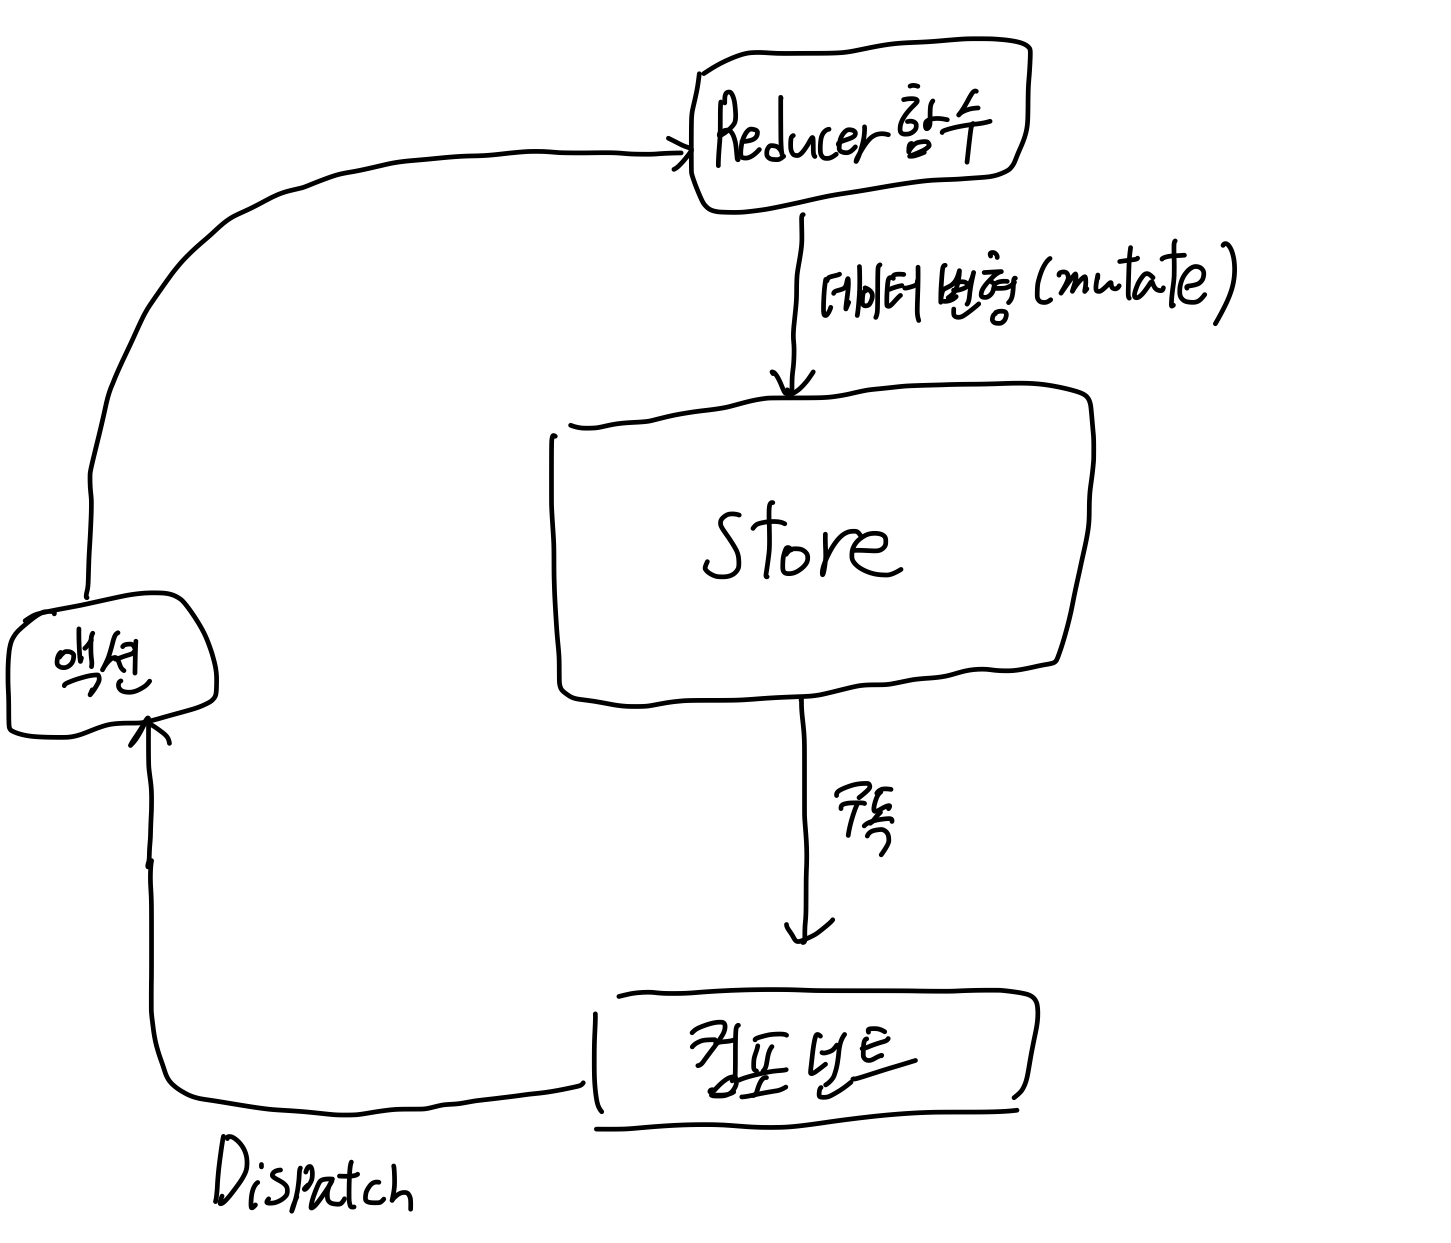 Reducer 함수
데이터 변형 (mutate)
Store
액션
구독
컴포넌트
Dispatch